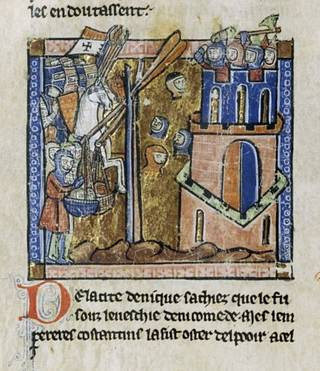 les en doutassent.
De la cite de nique sachiez que le fu
soiz leueschie de nicomede. Mes lem
pereres costantins la fist oster del pooir a cel